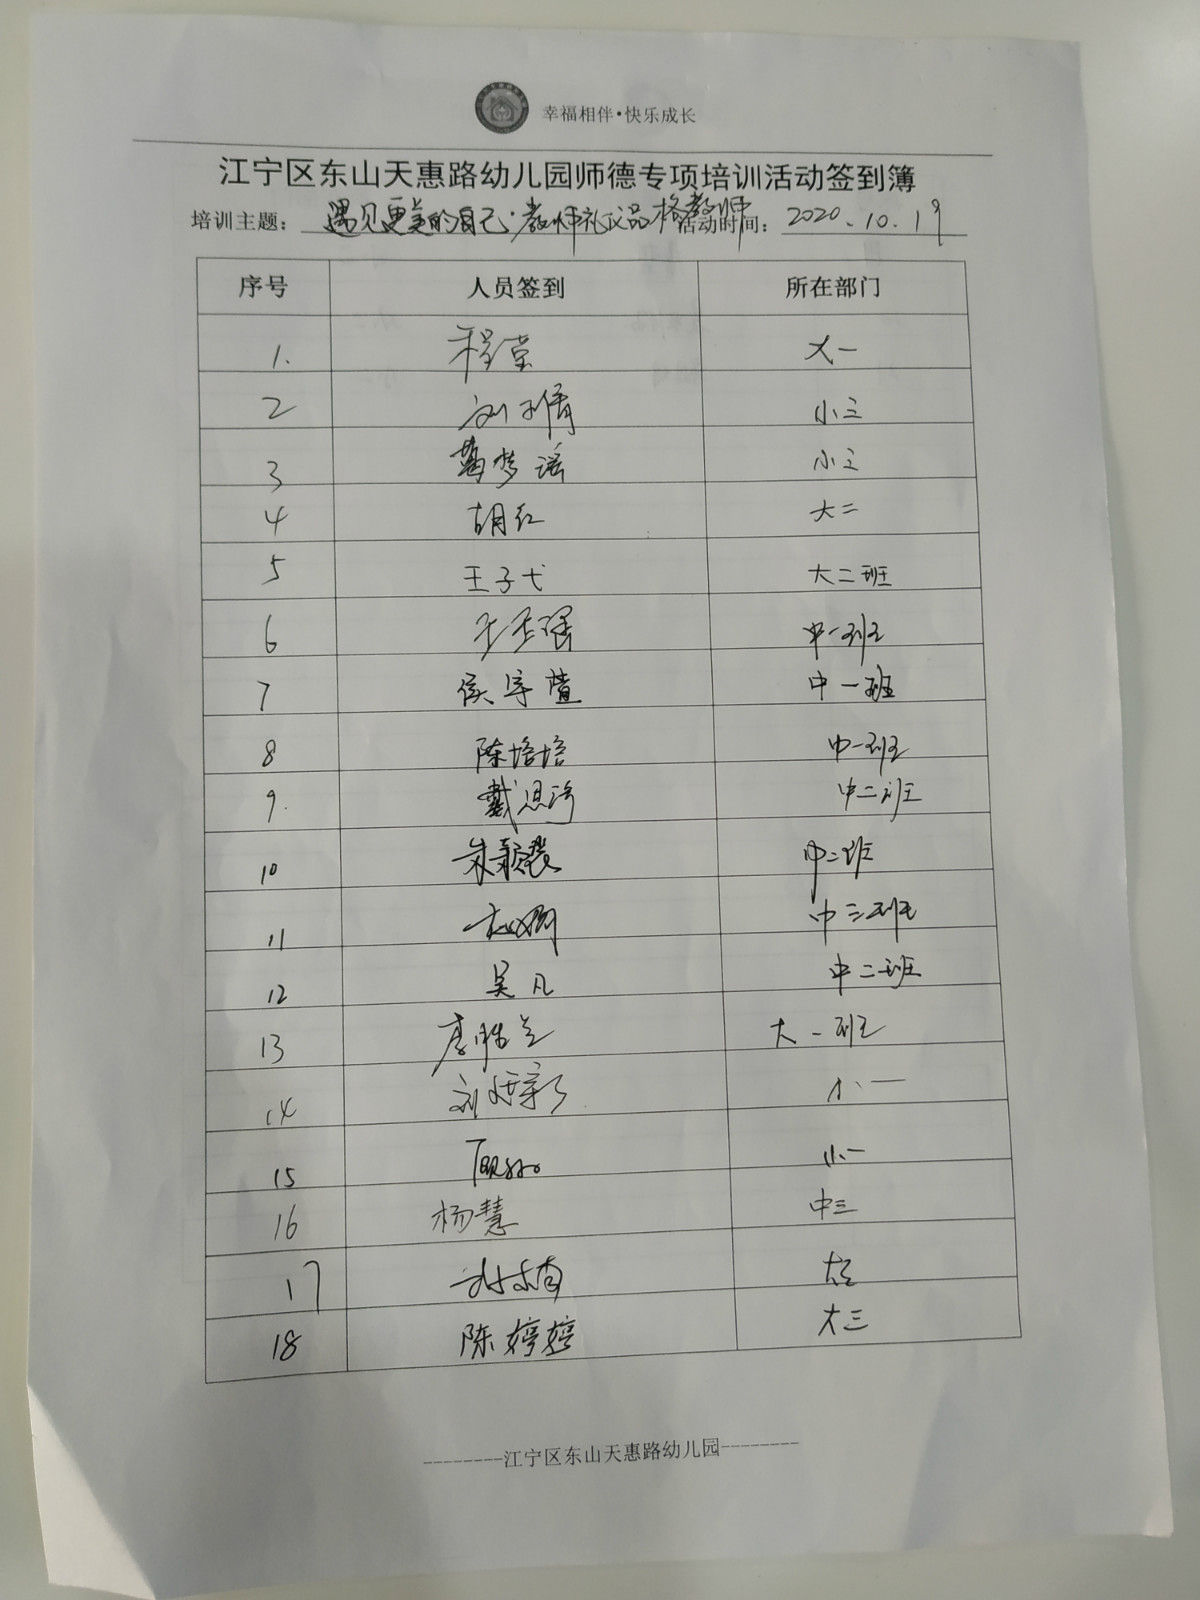 幸福相伴•快乐成长
江宁区东山天惠路幼儿园师德专项培训活动签到簿
培训主题：遇见更美的自己·教师礼仪品格教师 活动时间：2020.10.19
序号 人员签到 所在部门
1. 程莹 大一
2 刘子倩 小三
3 葛梦瑶 小三
4 胡红 大二
5 王子弋 大二班
6 王玉瑶 中一班
7 侯宇萱 中一班
8 陈培培 中一班
9. 戴思琦 中二班
10 朱 中二班
11 中三班
12 吴凡 中二班
13 唐胜兰 大一班
14 刘 小一
15 顾 小一
16 杨慧 中三
17 大三
18 陈婷婷 大三
--------江宁区东山天惠路幼儿园--------